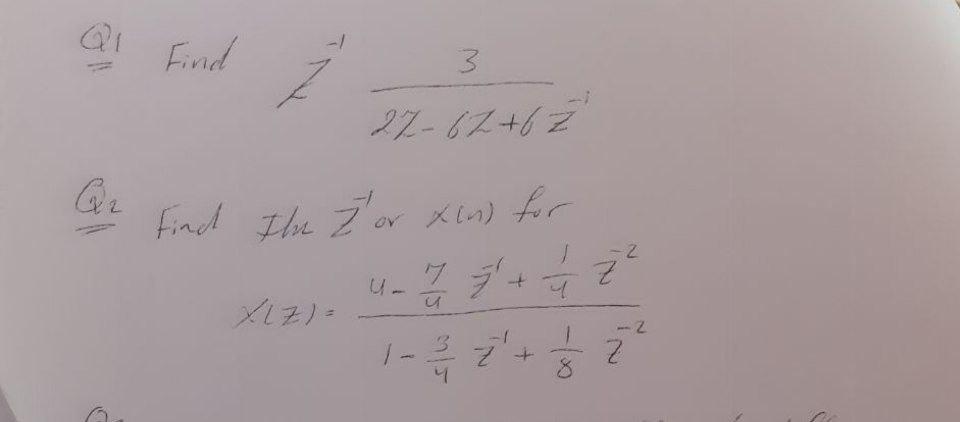 Q1 Find Z⁻¹ 3 / (2Z - 6Z + 6 Z⁻¹)
Q2 Find the Z⁻¹ or x(n) for
X(Z) = (4 - 7/4 Z⁻¹ + 1/4 Z⁻²) / (1 - 3/4 Z⁻¹ + 1/8 Z⁻²)